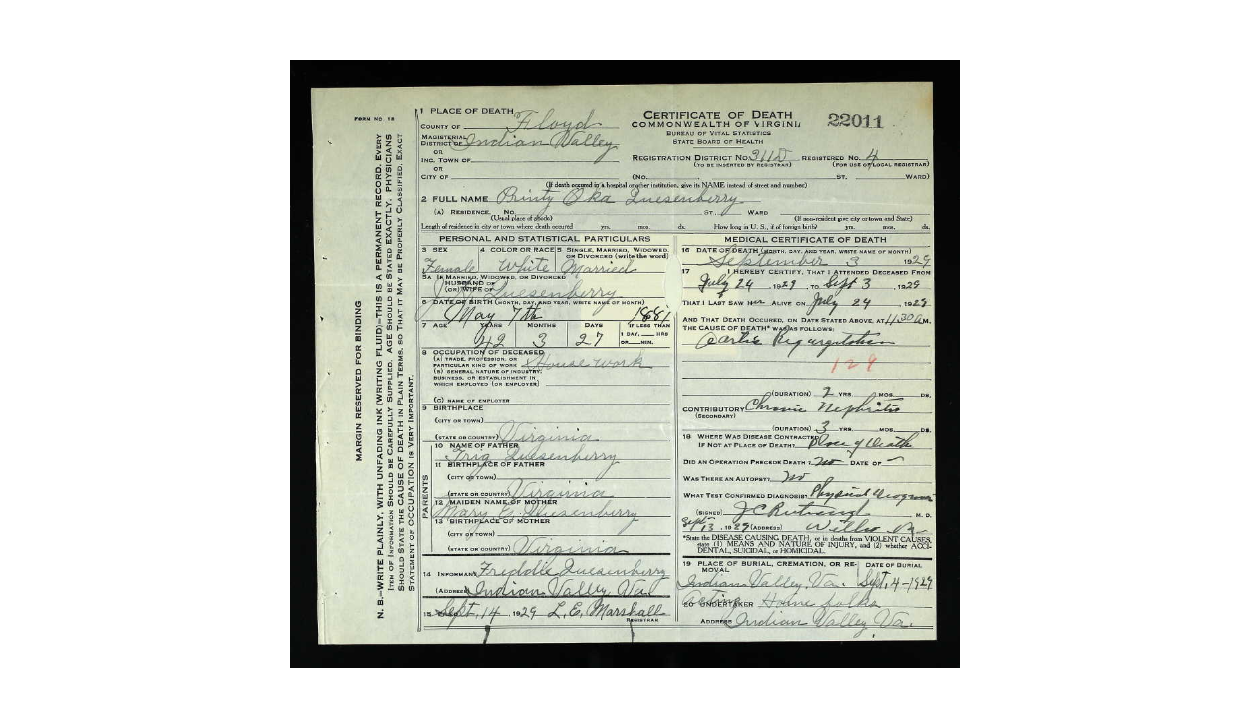 FORM NO. 18
MARGIN RESERVED FOR BINDING
N. B.—WRITE PLAINLY, WITH UNFADING INK (WRITING FLUID)—THIS IS A PERMANENT RECORD. EVERY
ITEM OF INFORMATION SHOULD BE CAREFULLY SUPPLIED. AGE SHOULD BE STATED EXACTLY. PHYSICIANS
SHOULD STATE THE CAUSE OF DEATH IN PLAIN TERMS, SO THAT IT MAY BE PROPERLY CLASSIFIED. EXACT
STATEMENT OF OCCUPATION IS VERY IMPORTANT.
1 PLACE OF DEATH
COUNTY OF Floyd
MAGISTERIAL DISTRICT OF Indian Valley
OR
INC. TOWN OF
OR
CITY OF (No. ST. WARD)
CERTIFICATE OF DEATH
COMMONWEALTH OF VIRGINI
BUREAU OF VITAL STATISTICS
STATE BOARD OF HEALTH
22011
REGISTRATION DISTRICT No. 311D REGISTERED No. 4
(TO BE INSERTED BY REGISTRAR) (FOR USE OF LOCAL REGISTRAR)
(If death occured in a hospital or other institution, give its NAME instead of street and number)
2 FULL NAME Oka Quesenberry
(A) RESIDENCE. No. ST. WARD
(Usual place of abode) (If non-resident give city or town and State)
Length of residence in city or town where death occured yrs. mos. ds. How long in U. S., if of foreign birth? yrs. mos. ds.
PERSONAL AND STATISTICAL PARTICULARS
3 SEX 4 COLOR OR RACE 5 SINGLE, MARRIED, WIDOWED, OR DIVORCED (write the word)
Female White Married
5A IF MARRIED, WIDOWED, OR DIVORCED
HUSBAND OF
(OR) WIFE OF Quesenberry
6 DATE OF BIRTH (MONTH, DAY, AND YEAR, WRITE NAME OF MONTH)
May 7th
7 AGE YEARS MONTHS DAYS IF LESS THAN
42 3 27 1 DAY, HRS
OR MIN.
8 OCCUPATION OF DECEASED
(A) TRADE, PROFESSION, OR
PARTICULAR KIND OF WORK House work
(B) GENERAL NATURE OF INDUSTRY,
BUSINESS, OR ESTABLISHMENT IN
WHICH EMPLOYED (OR EMPLOYER)
(C) NAME OF EMPLOYER
9 BIRTHPLACE
(CITY OR TOWN)
(STATE OR COUNTRY) Virginia
PARENTS
10 NAME OF FATHER
Trig Quesenberry
11 BIRTHPLACE OF FATHER
(CITY OR TOWN)
(STATE OR COUNTRY) Virginia
12 MAIDEN NAME OF MOTHER
Mary E. Quesenberry
13 BIRTHPLACE OF MOTHER
(CITY OR TOWN)
(STATE OR COUNTRY) Virginia
14 INFORMANT Freddie Quesenberry
(ADDRESS) Indian Valley, Va.
15 Sept 14, 1929 L. E. Marshall
REGISTRAR
MEDICAL CERTIFICATE OF DEATH
16 DATE OF DEATH (MONTH, DAY, AND YEAR, WRITE NAME OF MONTH)
September 3 1929
17 I HEREBY CERTIFY, THAT I ATTENDED DECEASED FROM
July 24 1929, TO Sept 3, 1929
THAT I LAST SAW Her ALIVE ON July 24, 1929
AND THAT DEATH OCCURED, ON DATE STATED ABOVE, AT 11.30 A.M.
THE CAUSE OF DEATH* WAS AS FOLLOWS:
Regurgitation
129
(DURATION) 2 YRS. MOS. DS.
CONTRIBUTORY Chronic Nephritis
(SECONDARY)
(DURATION) 3 YRS. MOS. DS.
18 WHERE WAS DISEASE CONTRACTED
IF NOT AT PLACE OF DEATH? Place of Death
DID AN OPERATION PRECEDE DEATH? no DATE OF —
WAS THERE AN AUTOPSY? no
WHAT TEST CONFIRMED DIAGNOSIS? Physical
(SIGNED) M. D.
Sept 13, 1929 (ADDRESS) Willis Va
*State the DISEASE CAUSING DEATH, or in deaths from VIOLENT CAUSES,
state (1) MEANS AND NATURE OF INJURY, and (2) whether ACCI-
DENTAL, SUICIDAL, or HOMICIDAL.
19 PLACE OF BURIAL, CREMATION, OR RE- DATE OF BURIAL
MOVAL
Indian Valley, Va. Sept. 4-1929
Acting
20 UNDERTAKER Home folks
ADDRESS Indian Valley Va.